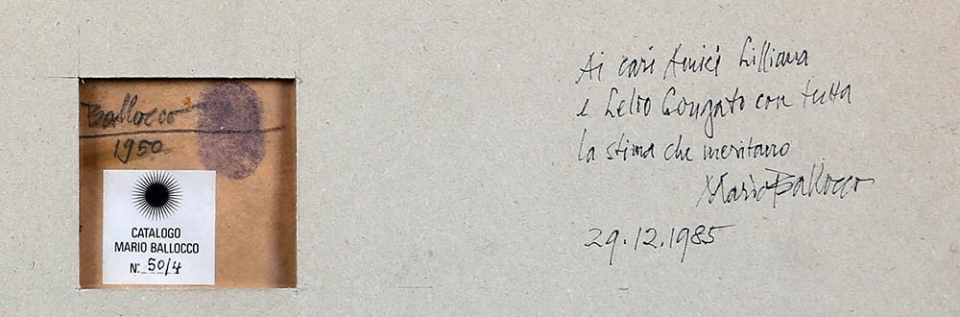 Ballocco
1950
CATALOGO
MARIO BALLOCCO
N: 50/4
Ai cari Amici Lilliana
e Lelio Gonzato con tutta
la stima che meritano
Mario Ballocco
29.12.1985